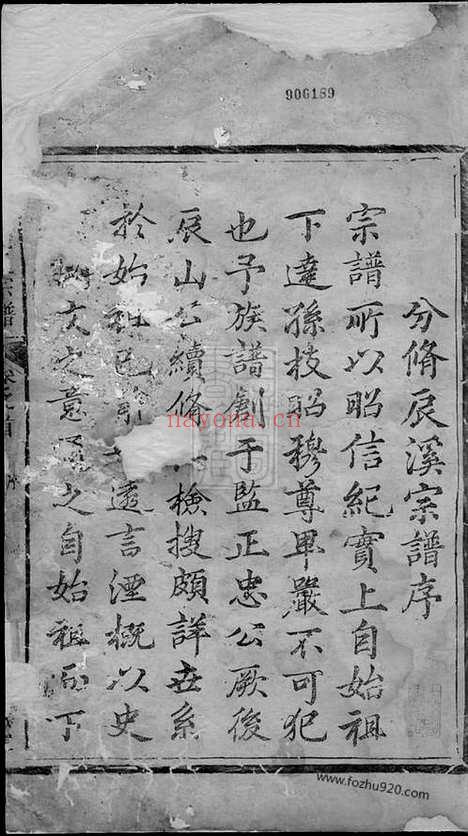 906189
分脩辰溪宗譜序
宗譜所以昭信紀實上自始祖
下達孫枝昭穆尊卑嚴不可犯
也予族譜創于監正忠公厥後
辰山公續脩檢搜頗詳世系
於始祖已遠言湮概以史
文之意之自始祖而下
譜
序
nayona.cn
www.fozhu920.com